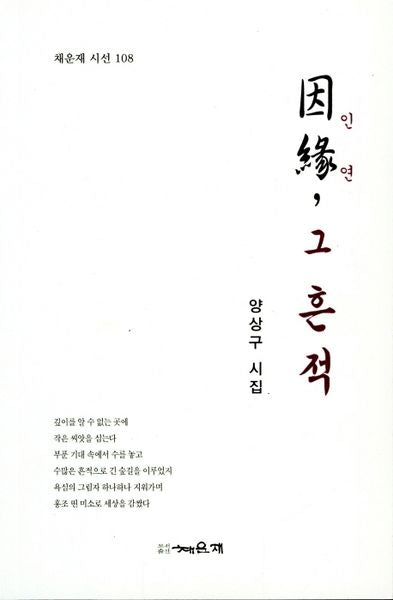 채운재 시선 108
因緣, 그 흔적
인연
양상구 시집
깊이를 알 수 없는 곳에
작은 씨앗을 심는다
부푼 기대 속에서 수를 놓고
수많은 흔적으로 긴 숲길을 이루었지
욕실의 그림자 하나하나 지워가며
홍조 띤 미소로 세상을 감쌌다
도서출판 채운재